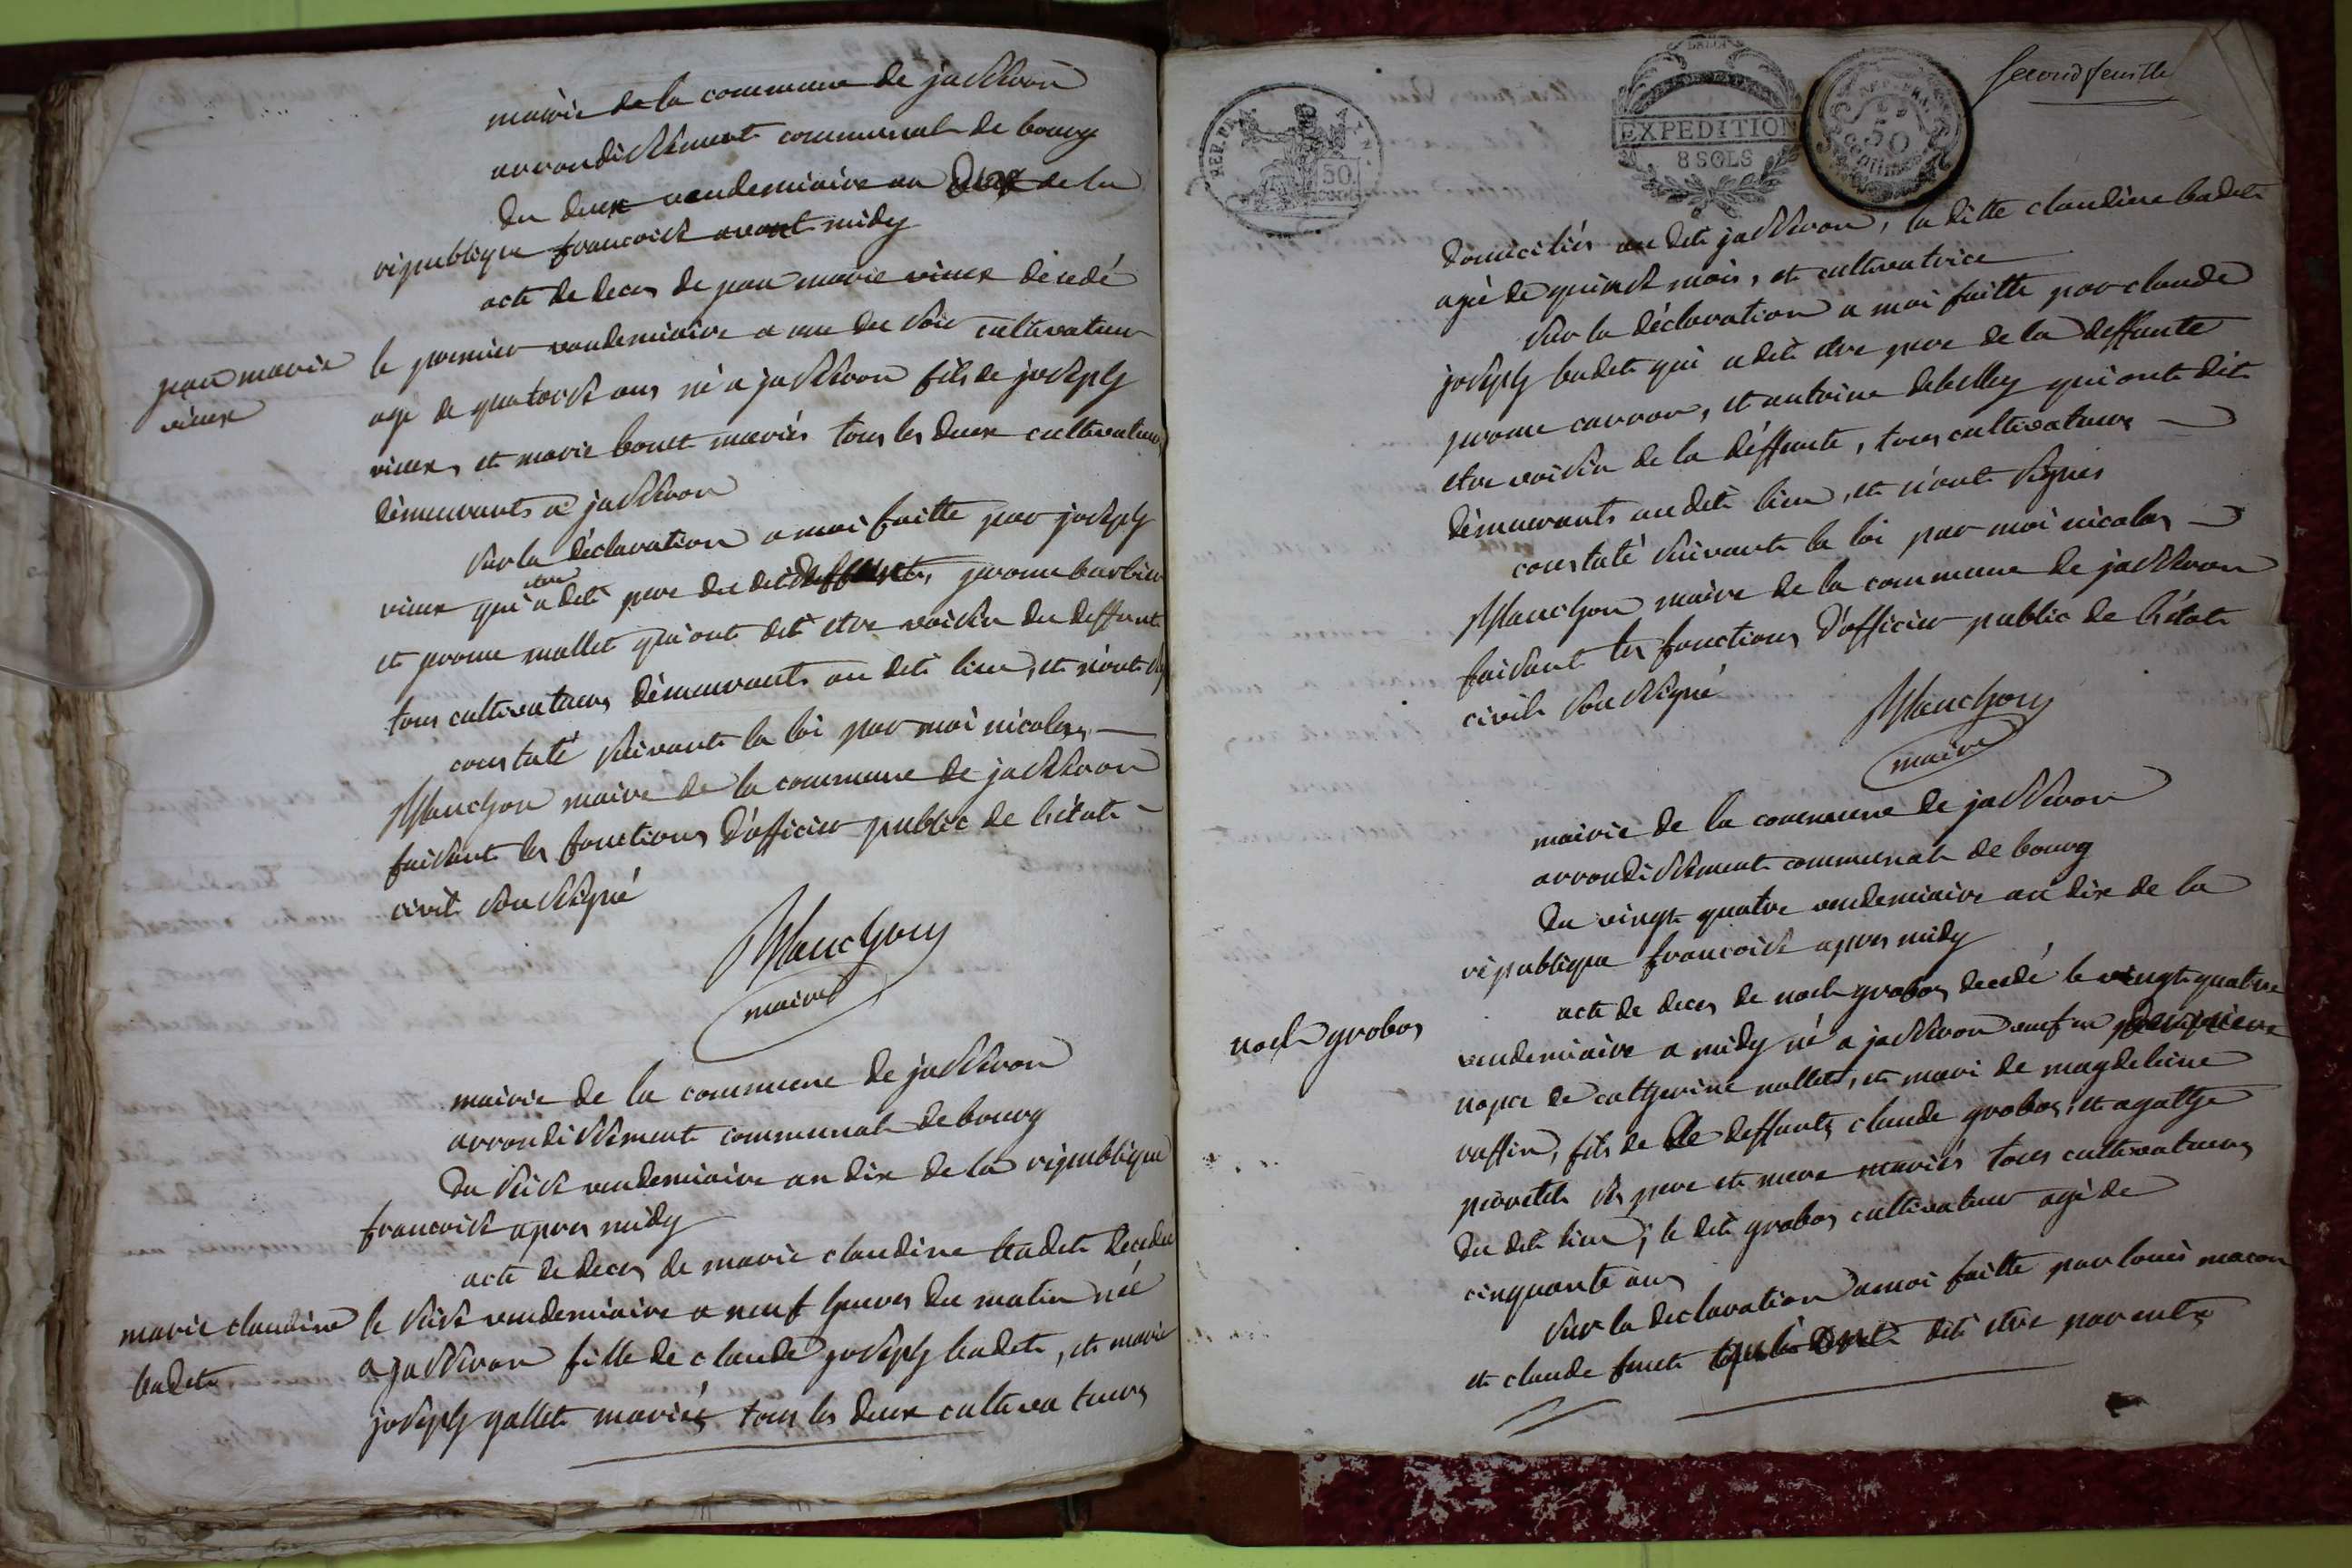 mairie de la commune de jasseron
arrondissement communal de bourg
du deux vendemiaire an dix de la
république francoise avant midy
acte de deces de jean marie vieux décedé
jean marie
vieux
le premier vendemiaire a une du soir cultivateur
agé de quatorse ans né a jasseron fils de joseph
vieux, et marie bouet mariés tous les deux cultivateurs
démeurants a jasseron
sur la déclaration a moi faitte par joseph
vieux qui a dit etre pere du dit deffunt, jerome barbier
et jerome mallet qui ont dit etre voisin du deffunt
tous cultivateurs démeurants au dit lieu, et n'ont
constaté suivant la loi par moi nicolas
Manchon maire de la commune de jasseron
faisant les fonctions d'officier public de l'état
civil soussigné
Manchon
maire
mairie de la commune de jasseron
arrondissement communal de bourg
du seise vendemiaire an dix de la république
francoise apres midy
acte de deces de marie claudine badet décedée
marie claudine
badet
le seise vendemiaire a neuf heures du matin née
a jasseron fille de claude joseph badet, et marie
joseph gallet mariés tous les deux cultivateurs
REP. FRA.
50
CENT.
EXPEDITION
8 SOLS
50
centimes
second feuille
domiciliés au dit jasseron, la ditte claudine badet
agée de quinse mois, et cultivatrice
sur la déclaration a moi faitte par claude
joseph badet qui a dit etre pere de la deffunte
jerome carron, et antoine debelley qui ont dit
etre voisin de la deffunte, tous cultivateurs
démeurants au dit lieu, et n'ont signés
constaté suivant la loi par moi nicolas
Manchon maire de la commune de jasseron
faisant les fonctions d'officier public de l'état
civil soussigné
Manchon
maire
mairie de la commune de jasseron
arrondissement communal de bourg
du vingt quatre vendemiaire an dix de la
république francoise apres midy
acte de deces de noel grobas decedé le vingt quatre
noel grobas
vendemiaire a midy né a jasseron veuf en premiere
nopce de catherine nallet, et mari de magdeleine
raffin, fils de deffunts claude grobas, et agathe
pirretet ses pere et mere mariés tous cultivateurs
du dit lieu; le dit grobas cultivateur agé de
cinquante ans
sur la declaration a moi faitte par louis macon
et claude fauet qui ont dit etre parents